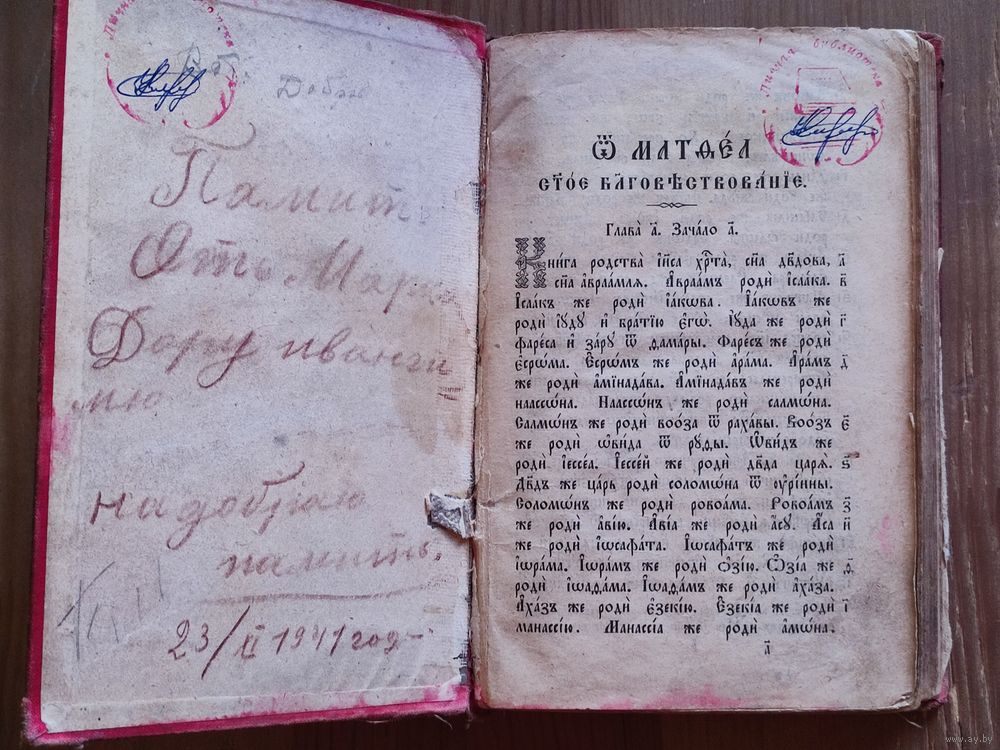 Личная библиотека
Добр
Памить
Отъ Марка
Дору иванги
мю
на добрию
памить.
23/II 1941 год
Личная библиотека
Ѿ МАТѲЕ́А
СТ҃О́Е БЛ҃ГОВѢСТВОВА́НЇЕ.
Глава̀ а҃. Зача́ло а҃.
Кни́га родства̀ і҆и҃са хр҃та̀, сн҃а дв҃дова, а҃
сн҃а а҆враа́млѧ. А҆враа́мъ родѝ і҆саа́ка. в҃
І҆саа́къ же родѝ і҆а́кѡва. І҆а́кѡвъ же
родѝ і҆ꙋ́дꙋ и҆ бра́тїю є҆гѡ̀. І҆ꙋ́да же родѝ г҃
фаре́са и҆ за́рꙋ ѿ ѳама́ры. Фаре́съ же родѝ
є҆срѡ́ма. Є҆срѡ́мъ же родѝ а҆ра́ма. А҆ра́мъ д҃
же родѝ а҆мїнада́ва. А҆мїнада́въ же родѝ
наассѡ́на. Наассѡ́нъ же родѝ салмѡ́на.
Салмѡ́нъ же родѝ воо́за ѿ раха́вы. Воо́зъ є҃
же родѝ ѡ҆ви́да ѿ рꙋ́ѳы. Ѡ҆ви́дъ же
родѝ і҆ессе́а. І҆ессе́й же родѝ дв҃да царѧ̀. ѕ҃
Дв҃дъ же ца́рь родѝ соломѡ́на ѿ ᲂу҆рі́нны.
Соломѡ́нъ же родѝ ровоа́ма. Ровоа́мъ з҃
же родѝ а҆ві́ю. А҆ві́а же родѝ а҆́сꙋ. А҆́са и҃
же родѝ і҆ѡсафа́та. І҆ѡсафа́тъ же родѝ
і҆ѡра́ма. І҆ѡра́мъ же родѝ ѻ҆зі́ю. Ѻ҆зі́а же ѳ҃
родѝ і҆ѡаѳа́ма. І҆ѡаѳа́мъ же родѝ а҆ха́за.
А҆ха́зъ же родѝ є҆зекі́ю. Є҆зекі́а же родѝ і҃
манассі́ю. Манассі́а же родѝ а҆мѡ́на.
а҃
www.ay.by